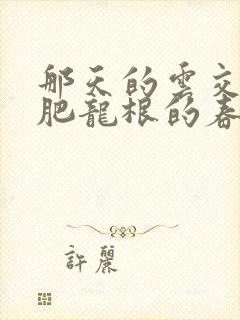 那天的雲交
肥龍根的春
許麗